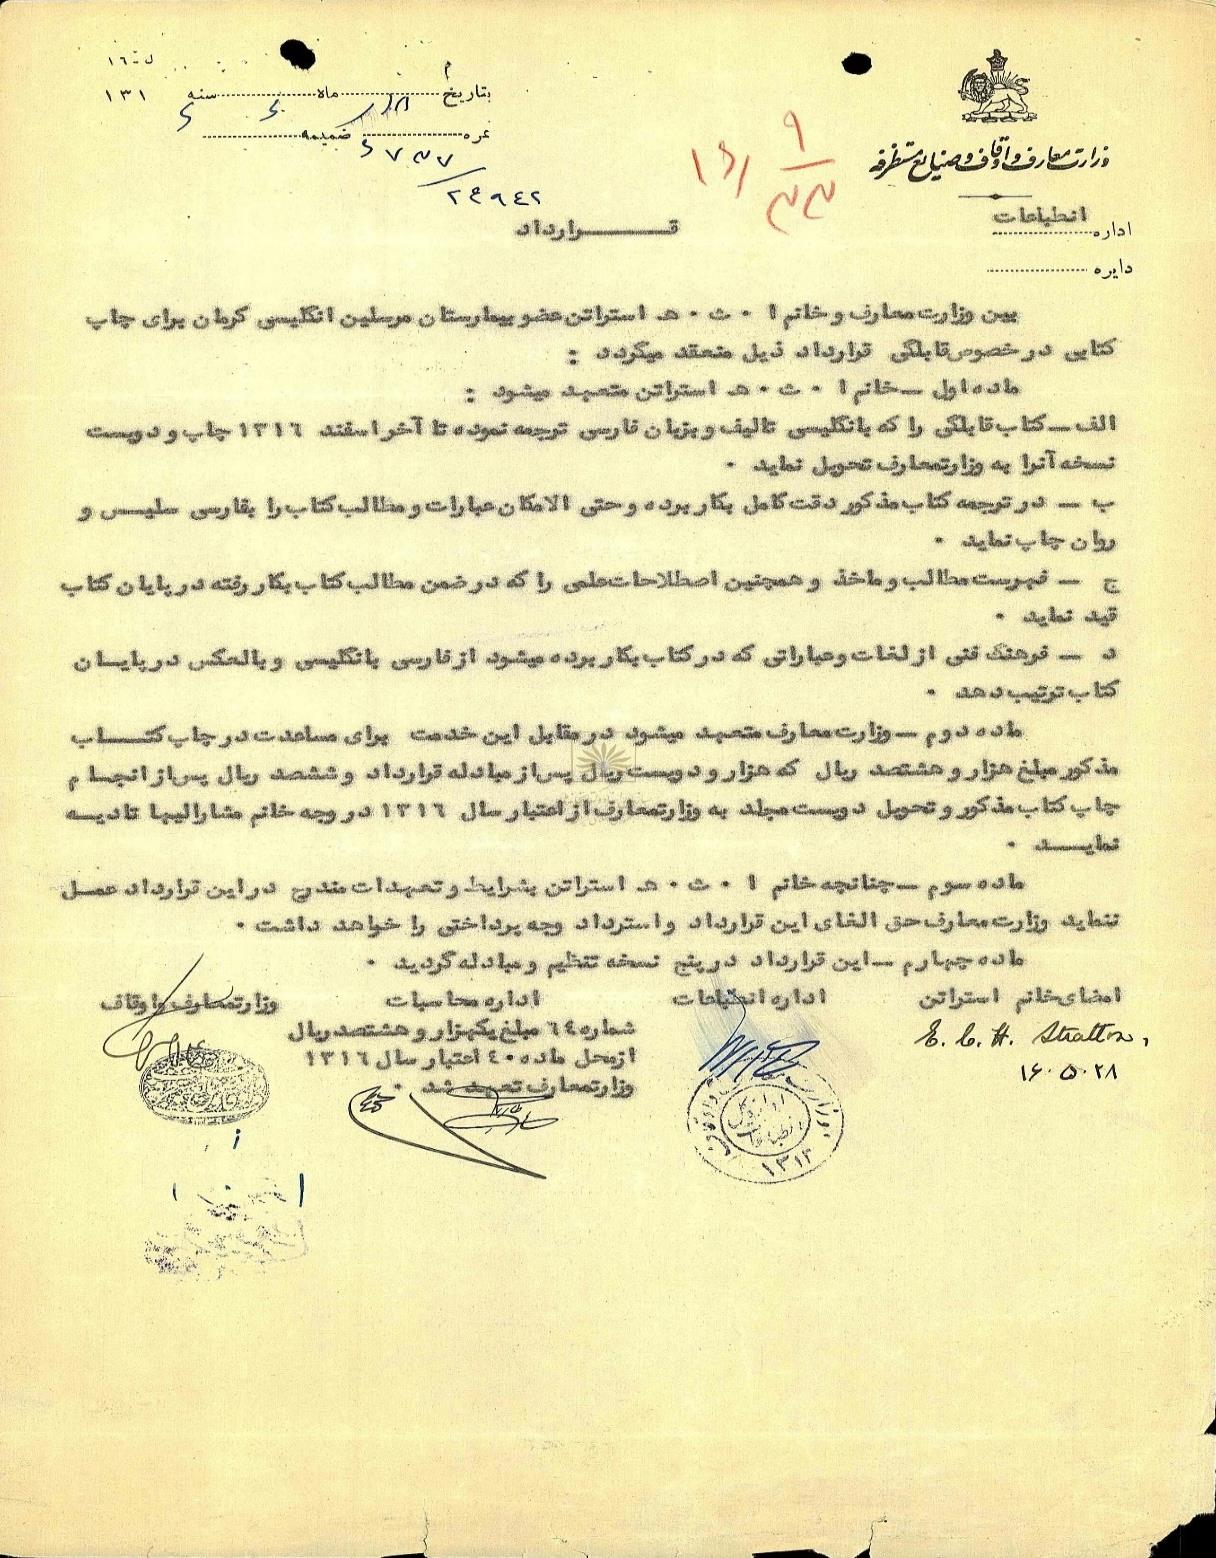 بتاریخ ماه سنه ۱۳۱
نمره ضمیمه
۲۴۹۴۲
۹
وزارت معارف و اوقاف و صنایع مستظرفه
اداره انطباعات
دایره
قـــرارداد
بین وزارت معارف و خانم ا ۰ ث ۰ هـ استراتن عضو بیمارستان مرسلین انگلیسی کرمان برای چاپ
کتابی در خصوص قابلگی قرارداد ذیل منعقد میگردد :
ماده اول ــ خانم ا ۰ ث ۰ هـ استراتن متعهد میشود :
الف ــ کتاب قابلگی را که بانگلیسی تالیف و بزبان فارسی ترجمه نموده تا آخر اسفند ۱۳۱۶ چاپ و دویست
نسخه آنرا به وزارتمعارف تحویل نماید ۰
ب ــ در ترجمه کتاب مذکور دقت کامل بکار برده و حتی الامکان عبارات و مطالب کتاب را بفارسی سلیس و
روان چاپ نماید ۰
ج ــ فهرست مطالب و ماخذ و همچنین اصطلاحات علمی را که در ضمن مطالب کتاب بکار رفته در پایان کتاب
قید نماید ۰
د ــ فرهنگ فنی از لغات و عباراتی که در کتاب بکار برده میشود از فارسی بانگلیسی و بالعکس در پایـان
کتاب ترتیب دهد ۰
ماده دوم ــ وزارت معارف متعهد میشود در مقابل این خدمت برای مساعدت در چاپ کتـــاب
مذکور مبلغ هزار و هشتصد ریال که هزار و دویست ریال پس از مبادله قرارداد و ششصد ریال پس از انجـام
چاپ کتاب مذکور و تحویل دویست مجلد به وزارتمعارف از اعتبار سال ۱۳۱۶ در وجه خانم مشارالیها تادیـه
نمایـــد ۰
ماده سوم ــ چنانچه خانم ا ۰ ث ۰ هـ استراتن بشرایط و تعهدات مندرج در این قرارداد عمـل
ننماید وزارت معارف حق الغای این قرارداد و استرداد وجه پرداختی را خواهد داشت ۰
ماده چهارم ــ این قرارداد در پنج نسخه تنظیم و مبادله گردید ۰
امضای خانم استراتن اداره انطباعات اداره محاسبات وزارتمعارف و اوقاف
شماره ۶۴ مبلغ یکهزار و هشتصد ریال
از محل ماده ۴۰ اعتبار سال ۱۳۱۶
وزارتمعارف تعهد شد ۰
E. C. H. Stratton.
۱۶ . ۵ . ۲۸
وزارت
اداره کل انطباعات
۱۳۱۴